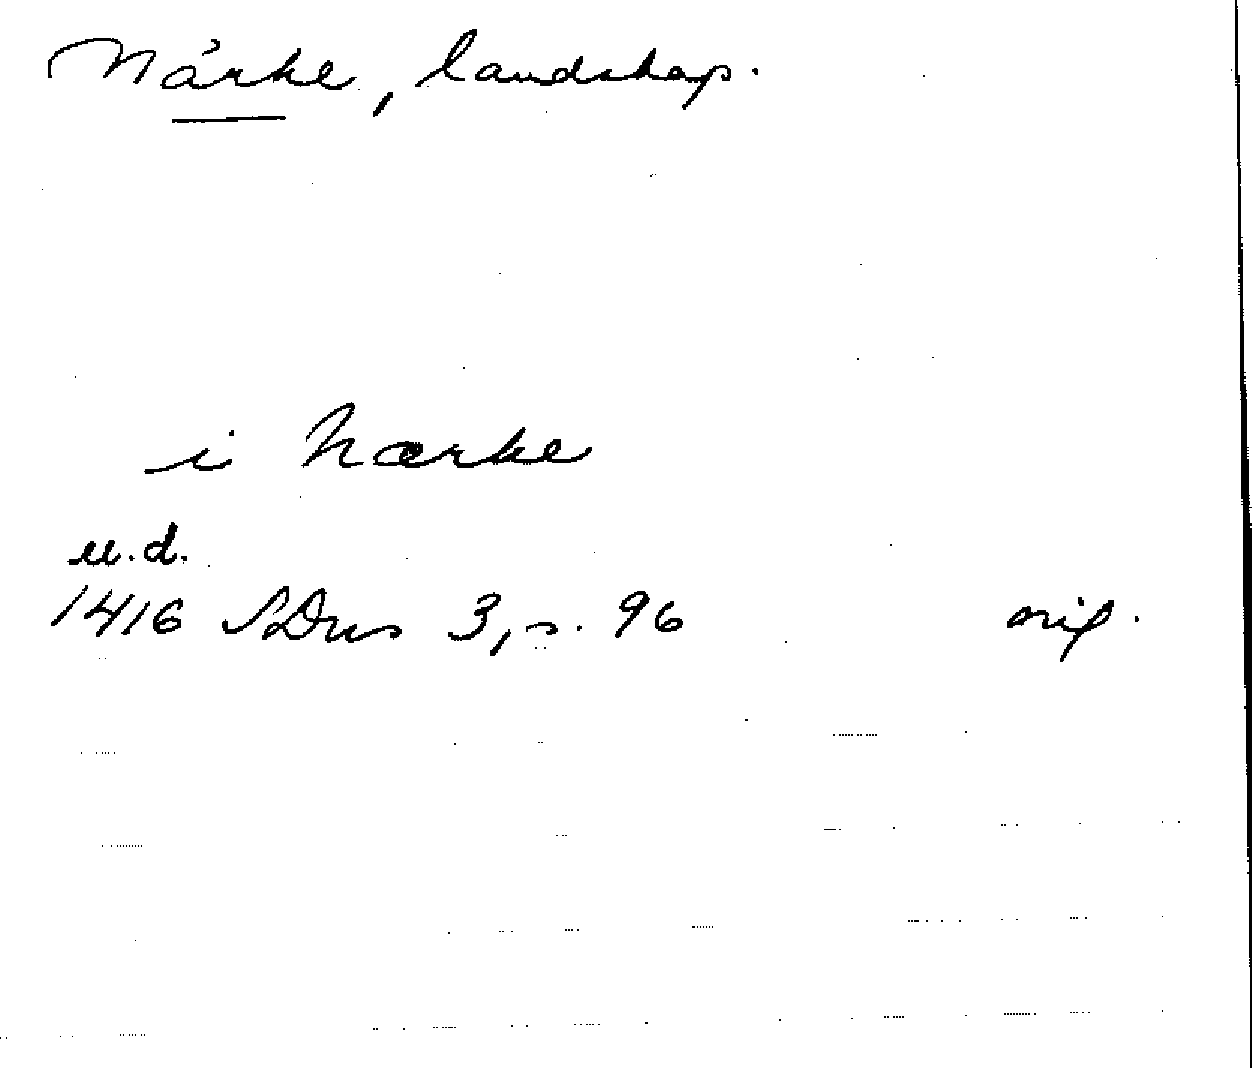 Närke, landskap.
i Nærke
u.d.
1416 SDns 3, s. 96 orig.